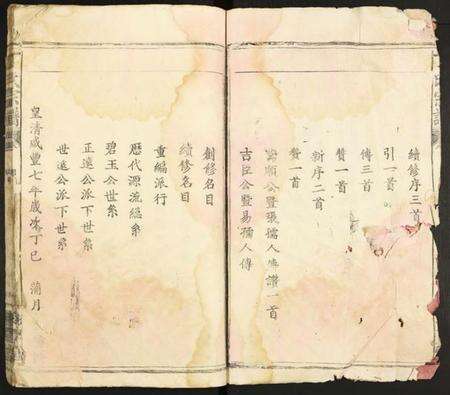 續修序三首
引一首
傳三首
贊一首
新序二首
贊一首
順公暨張孺人傳讚一首
吉臣公暨易孺人傳
創修名目
續修名目
重編派行
歷代源流總系
碧玉公世系
正遠公派下世系
世遠公派下世系
皇清咸豐七年歲次丁巳 蒲月